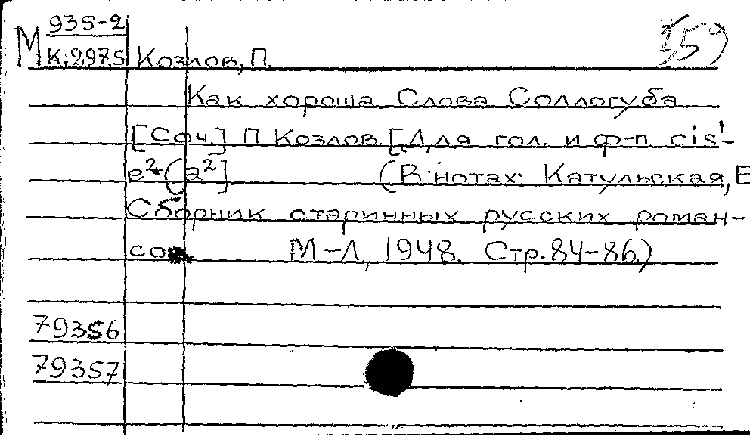 М 935-2
К:2975 Козлов, П.
Как хороша Слова Соллогуба
[Соч] П Козлов. [Для гол. и ф-п. cis'-
e²-(a²]. (В нотах: Катульская, Е
Сборник старинных русских роман-
сов. М-Л, 1948. Стр. 84-86.)
79356
79357